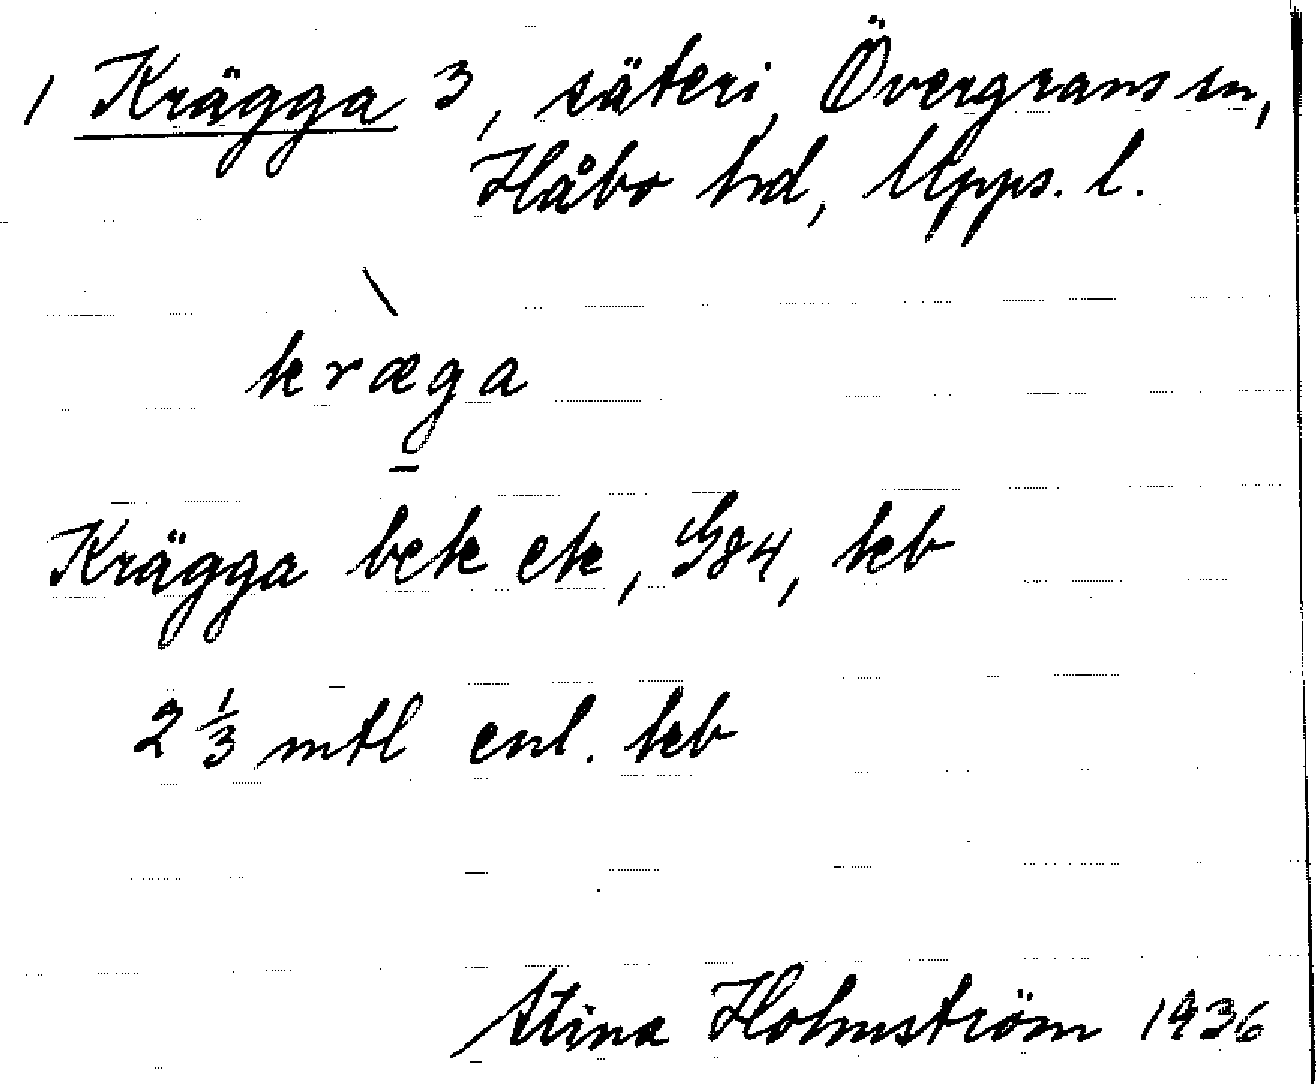 1 Krägga 3, säteri, Övergrans sn,
Håbo hd, Upps. l.
kræga
Krägga bek ek, G84, keb
2 1/3 mtl enl. keb
Stina Holmström 1936